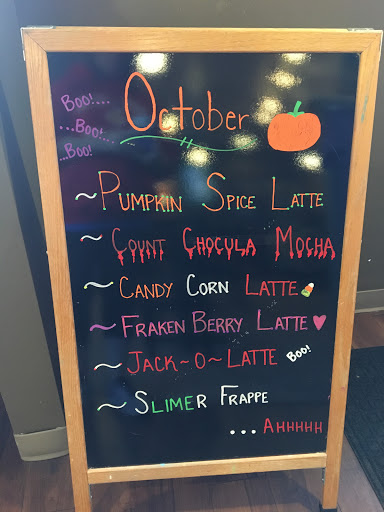 Boo!....
...Boo!...
...Boo!
October
~Pumpkin Spice Latte
~ Count Chocula Mocha
~ Candy Corn Latte
~ Fraken Berry Latte ♥
~ Jack~O~Latte Boo!
~ Slimer Frappe
...Ahhhhh